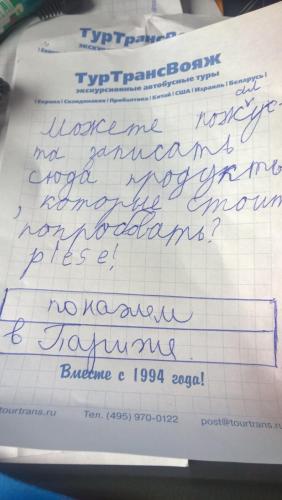 ТурТрансВояж
экскурсионные автобусные туры
ТурТрансВояж
экскурсионные автобусные туры
| Европа | Скандинавия | Прибалтика | Китай | США | Израиль | Беларусь |
ал
Можете пожус-
та записать
сюда продукты
, которые стоит
попробовать?
plese!
покажем
в Париже.
Вместе с 1994 года!
tourtrans.ru Тел. (495) 970-0122 post@tourtrans.ru